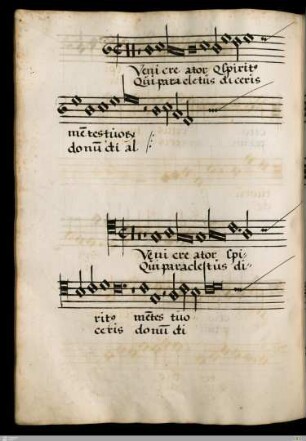 Veni cre ator Spiritꝰ
Qui paracletus diceris
mētes tuorū
donū dī al
Veni cre ator spi-
Qui paracletus di-
ritꝰ mētes tuo
ceris donū dī